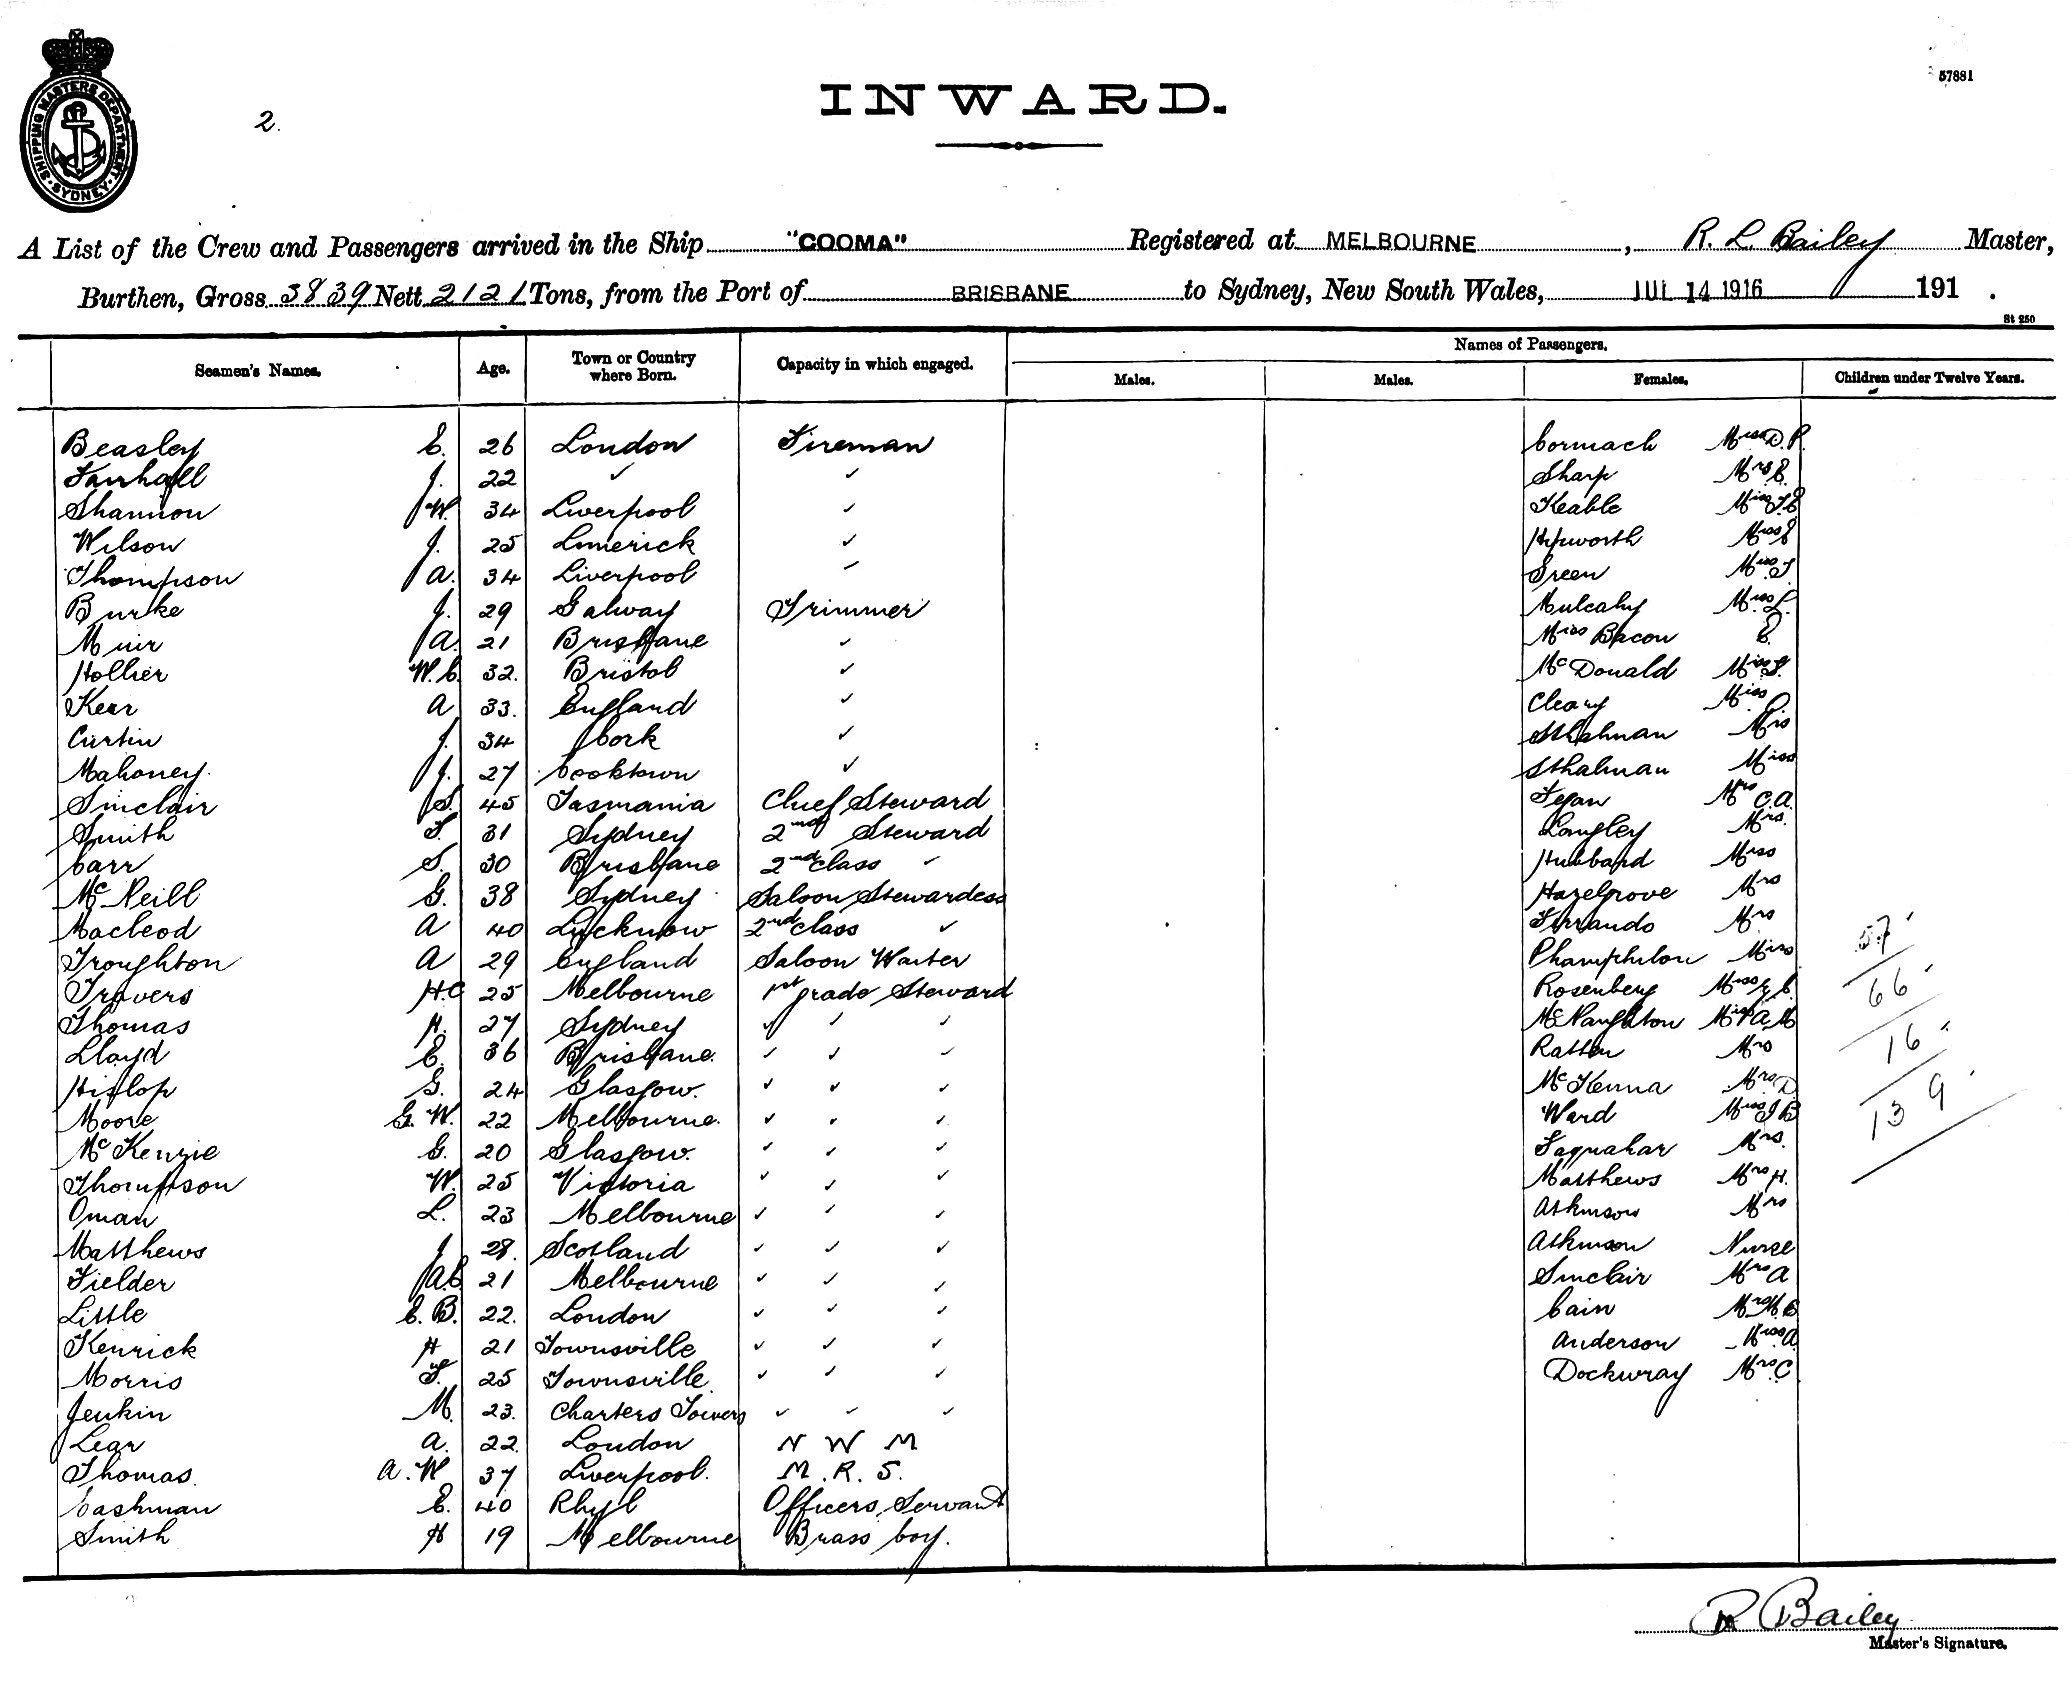 57881
SHIPPING MASTERS DEPARTMENT SYDNEY
2.
INWARD.
A List of the Crew and Passengers arrived in the Ship "COOMA" Registered at MELBOURNE, R. L. Bailey Master,
Burthen, Gross 3839 Nett 2121 Tons, from the Port of BRISBANE to Sydney, New South Wales, JUL 14 1916 191 .
St 250
Seamen's Names. Age. Town or Country where Born. Capacity in which engaged. Names of Passengers.
Males. Males. Females. Children under Twelve Years.
Beasley E. 26 London Fireman Cormach Miss D. P.
Fairhall J. 22 ✓ ✓ Sharp Mrs E.
Shannon W. 34 Liverpool ✓ Keable Miss
Wilson J. 25 Limerick ✓ Hepworth Miss E
Thompson A. 34 Liverpool ✓ Green Miss
Burke J. 29 Galway Trimmer Mulcahy Miss L.
Muir A. 21 Brisbane ✓ Miss Bacon E.
Hollier W. C. 32. Bristol ✓ McDonald Miss
Kerr A 33. England ✓ Cleary Miss
Curtin J. 34 Cork ✓ Sthalman Mrs
Mahoney. J. 27 Cooktown ✓ Sthalman Miss
Sinclair S. 45 Tasmania Chief Steward Fegan Mrs C. A.
Smith T. 31 Sydney 2nd Steward Langley Mrs.
Carr S. 30 Brisbane 2nd class ✓ Hubbard Miss
McNeill G. 38 Sydney Saloon Stewardess Hazelgrove Mrs
Macleod A 40 Lucknow 2nd class ✓ Ferrando Mrs
Troughton A 29 England Saloon Waiter Phamphilon Miss
Travers H.C 25 Melbourne 1st grade Steward Rosenberg Miss
Thomas H. 27 Sydney ✓ ✓ ✓ McNaughton Miss A. M
Lloyd E. 36 Brisbane. ✓ ✓ ✓ Ratten Mrs
Hislop G. 24 Glasgow. ✓ ✓ ✓ McKenna Mrs D
Moore G. W. 22 Melbourne. ✓ ✓ ✓ Ward Miss I B
McKenzie G. 20 Glasgow. ✓ ✓ ✓ Faquahar Mrs.
Thompson W. 25 Victoria ✓ ✓ ✓ Matthews Mrs H.
Oman L. 23 Melbourne ✓ ✓ ✓ Atkinson Mrs
Matthews J 28. Scotland ✓ ✓ ✓ Atkinson Nurse
Fielder A.C 21 Melbourne ✓ ✓ ✓ Sinclair Mrs A
Little C. B. 22. London ✓ ✓ ✓ Cain Mrs
Kenrick H 21 Townsville ✓ ✓ ✓ Anderson Miss A
Morris 25 Townsville. ✓ ✓ ✓ Dockwray Mrs C
Jenkin M. 23. Charters Towers ✓ ✓ ✓
Lear A. 22. London N W M
Thomas. A. W 37 Liverpool. M. R. S.
Cashman E. 40 Rhyl Officers Servant
Smith H 19 Melbourne Brass boy.
57
66
16
139
R Bailey
Master's Signature.